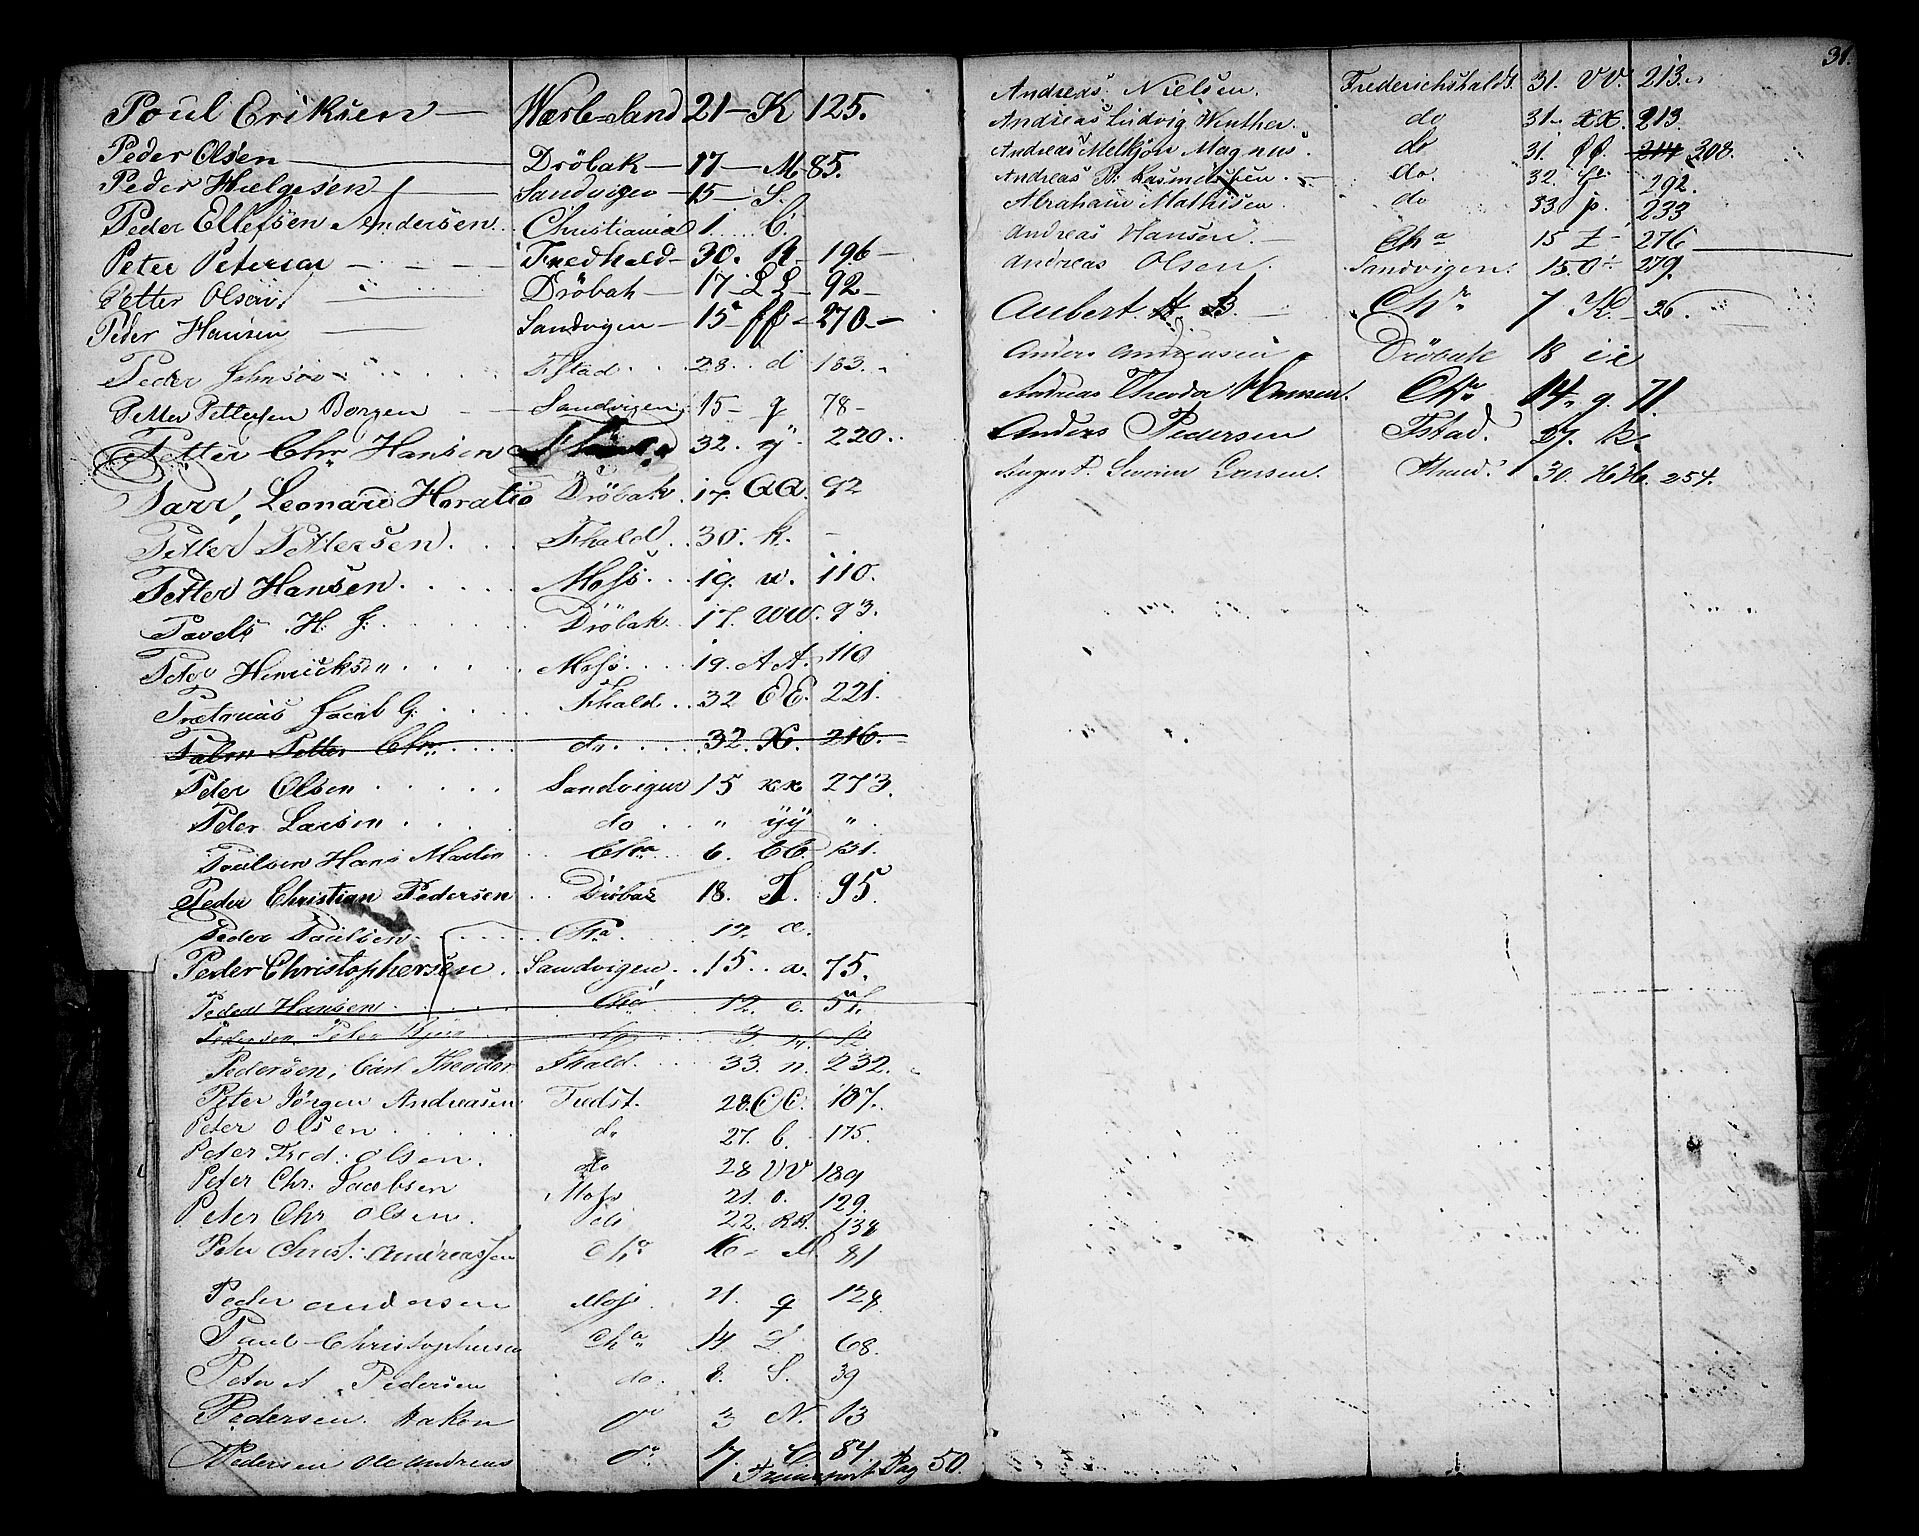 Poul Eriksen — Wærle-Sand 21 — K 125.
Peder Olsen — Dröbak — 17 — M 85.
Peder Hælgesen — Sandvigen — 15 — S.
Peder Ellefsen Andersen Christiania 1. C.
Peter Petersen — Fredhald — 30. R — 196 —
Petter Olsen Dröbak — 17 — LL — 92 —
Peder Hansen Sandvigen — 15 — ff — 270 —
Peder Johnson Fstad 28. d 183.
Petter Pettersen Borgen Sandvigen 15 — q 78 —
Petter Chr. Hansen 32. y. 220.
Parr, Leonard Horatio Dröbak 17. QQ. 92
Petter Pettersen. Fhald 30. k. —
Petter Hansen. Moss. 19. w. 110.
Pavels H. J. Dröbak 17. WW. 93.
Peter Henricksen Moss. 19. AA. 110
Prætorius Jacob G. Fhald. 32 EE. 221.
Petter Chr. do. 32. X. 216.
Peder Olsen Sandvigen 15 xx 273.
Peder Larsen do " yy " .
Poulsen Hans Martin Chra 6. CC. 131.
Peder Christian Pedersen Dröbak 18. I. 95.
Peder Paulsen Cha. 12. æ.
Peder Christophersen Sandvigen 15. a. 75.
Peder Hansen Cha 12. c.
Pedersen Peter do
Pedersen, Carl Theodor Fhald. 33. n. 232.
Peter Jörgen Andreasen Fredst. 28. CC. 187.
Peter Olsen do 27. b. 175.
Peter Fred. Olsen. do 28 VV 189
Peter Chr. Jacobsen Moss 21. o. 129.
Peter Chr Olsen. do 22. RR. 138
Peter Christ. Andreassen Cha 16 — M. 81
Peder Andersen Moss. 21. q 128
Paul Christophersen Cha 14 L. 68.
Peter A. Pedersen do. 8. S. 39
Pedersen. Hakon do 3 N. 13
Pedersen Ole Andreas do 17. C 84
Transport Pag 50.
31.
Andreas Nielsen. Frederichshald 31. VV. 213.
Andreas Ludvig Winther. do 31 — XX. 213.
Andreas Melkjör Magnus. do 31. ØØ. 214 208.
Andreas R. Rasmussen. do. 32. 292.
Abraham Mathisen. do 33. p. 233
Andreas Hansen. — Cha 15 Z — 276
Andreas Olsen. Sandvigen. 15. Ö 279.
Aubert. H. B. — Chr. 7 K. — 36.
Anders Andreasen Dröbak 18 ie
Andreas Theodor Hansen. Chr. 14. g. 71.
Anders Pedersen Fstad. 27. k.
August Severin Larssen. Fhald. 30. HH. 254.